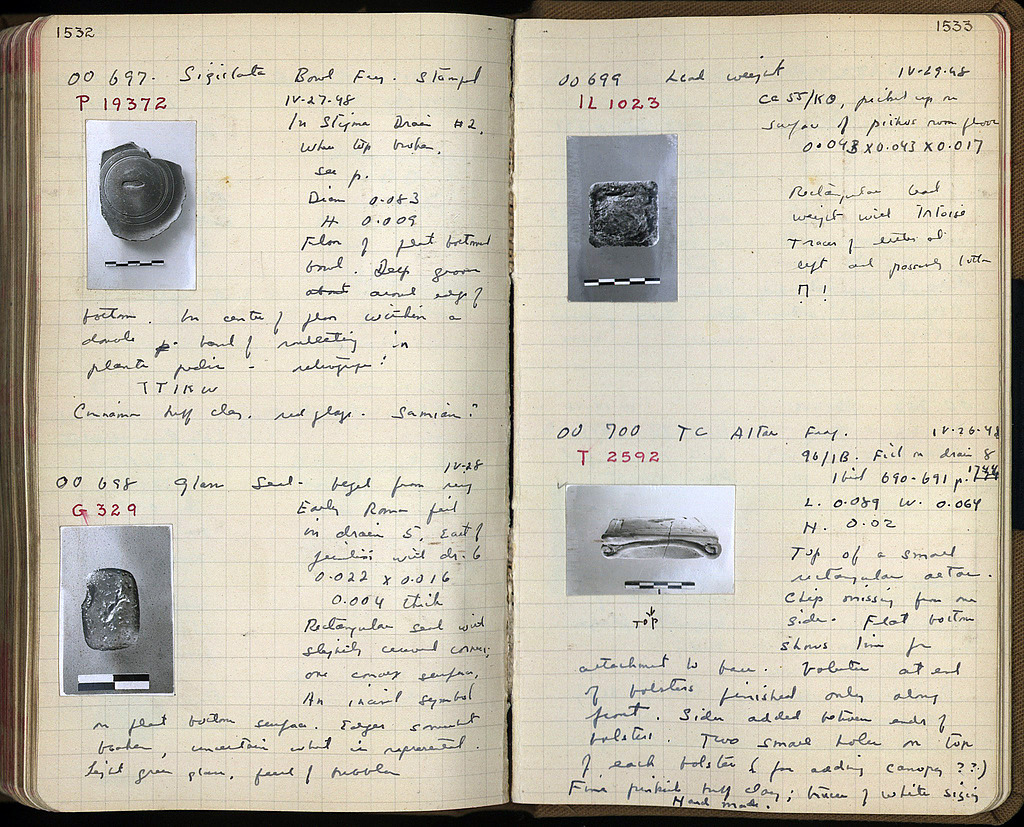 1532
OO 697. Sigillata Bowl Frag. Stamped
P 19372
IV-27-48
In Stigma Drain #2,
when top broken,
see p.
Diam 0.083
H 0.009
Floor of flat bottomed
bowl. Deep groove
about around edge of
bottom. In center of floor within a
double band of rouletting in
planta pedis -
Cinnamon buff clay, red glaze. Samian?
IV-28
OO 698 Glass Seal. bezel from ring
G 329
Early Roman fill
in drain 5, East of
junction with dr. 6
0.022 x 0.016
0.004 thick
Rectangular seal with
slightly curved corners;
one convex surface,
An incised symbol
on flat bottom surface. Edges somewhat
broken, uncertain what is represented.
Light green glass, full of bubbles
1533
OO 699 Lead weight
IV-29-48
IL 1023
CE 55/KO, picked up on
surface of pithos room floor
0.043 x 0.043 x 0.017
Rectangular lead
weight with Tortoise
Traces of letters at
left and possibly bottom
Π!
OO 700 TC Altar Frag.
IV-26-48
T 2592
96/IB. Fill in drain 8
Ibid 690-691 p. 1744
L. 0.089 W. 0.064
H. 0.02
TOP
Top of a small
rectangular altar.
Chip missing from one
side. Flat bottom
shows line for
attachment to base. Volutes at end
of bolsters finished only along
front. Sides added between ends of
bolsters. Two small holes on top
of each bolster (for adding canopy ??)
Fine pinkish buff clay; traces of white sizing
Hand made.